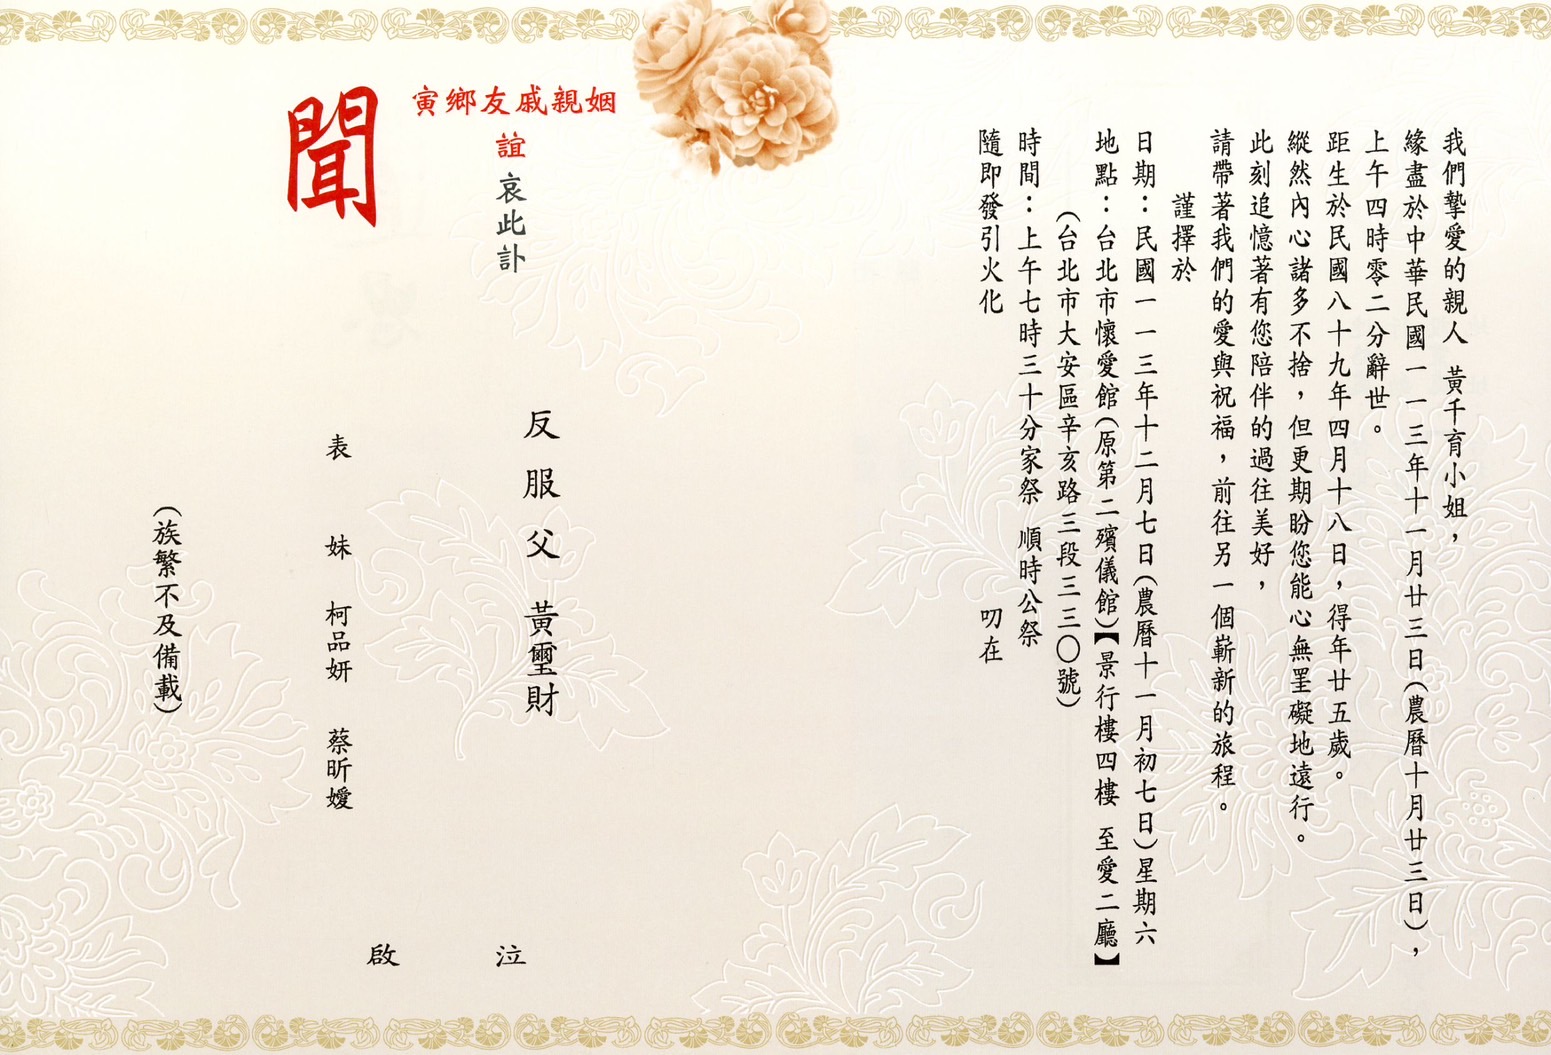 我們摯愛的親人 黃千育小姐，
緣盡於中華民國一一三年十一月廿三日(農曆十月廿三日)，
上午四時零二分辭世。
距生於民國八十九年四月十八日，得年廿五歲。
縱然內心諸多不捨，但更期盼您能心無罣礙地遠行。
此刻追憶著有您陪伴的過往美好，
請帶著我們的愛與祝福，前往另一個嶄新的旅程。
謹擇於
日期：民國一一三年十二月七日(農曆十一月初七日)星期六
地點：台北市懷愛館(原第二殯儀館)【景行樓四樓 至愛二廳】
(台北市大安區辛亥路三段三三〇號)
時間：上午七時三十分家祭 順時公祭
隨即發引火化 叨在
姻親戚友鄉寅
誼哀此訃
聞
反服父 黃璽財
表妹 柯品妍 蔡昕嬡
泣
啟
(族繁不及備載)